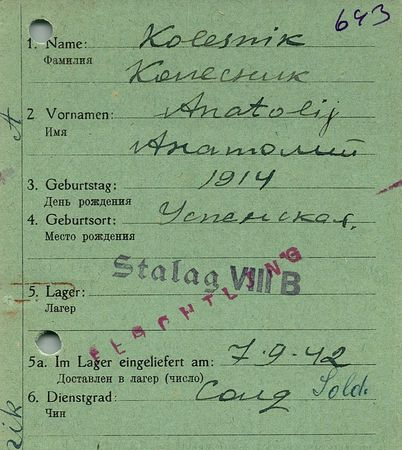 643
1. Name: Kolesnik
Фамилия Колесник
2 Vornamen: Anatolij
Имя Анатолий
3. Geburtstag: 1914
День рождения
4. Geburtsort: Успенская.
Место рождения
Stalag VIII B
5. Lager:
Лагер
5a. Im Lager eingeliefert am: 7.9.42
Доставлен в лагер (число)
6. Dienstgrad: Солд Sold.
Чин